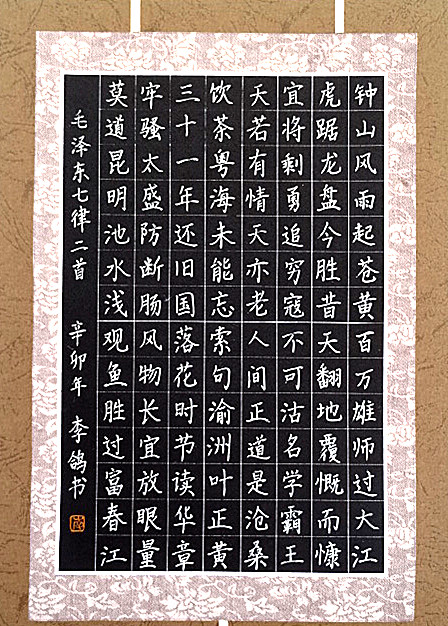 钟山风雨起苍黄百万雄师过大江
虎踞龙盘今胜昔天翻地覆慨而慷
宜将剩勇追穷寇不可沽名学霸王
天若有情天亦老人间正道是沧桑
饮茶粤海未能忘索句渝洲叶正黄
三十一年还旧国落花时节读华章
牢骚太盛防断肠风物长宜放眼量
莫道昆明池水浅观鱼胜过富春江
毛泽东七律二首 辛卯年 李鸽书